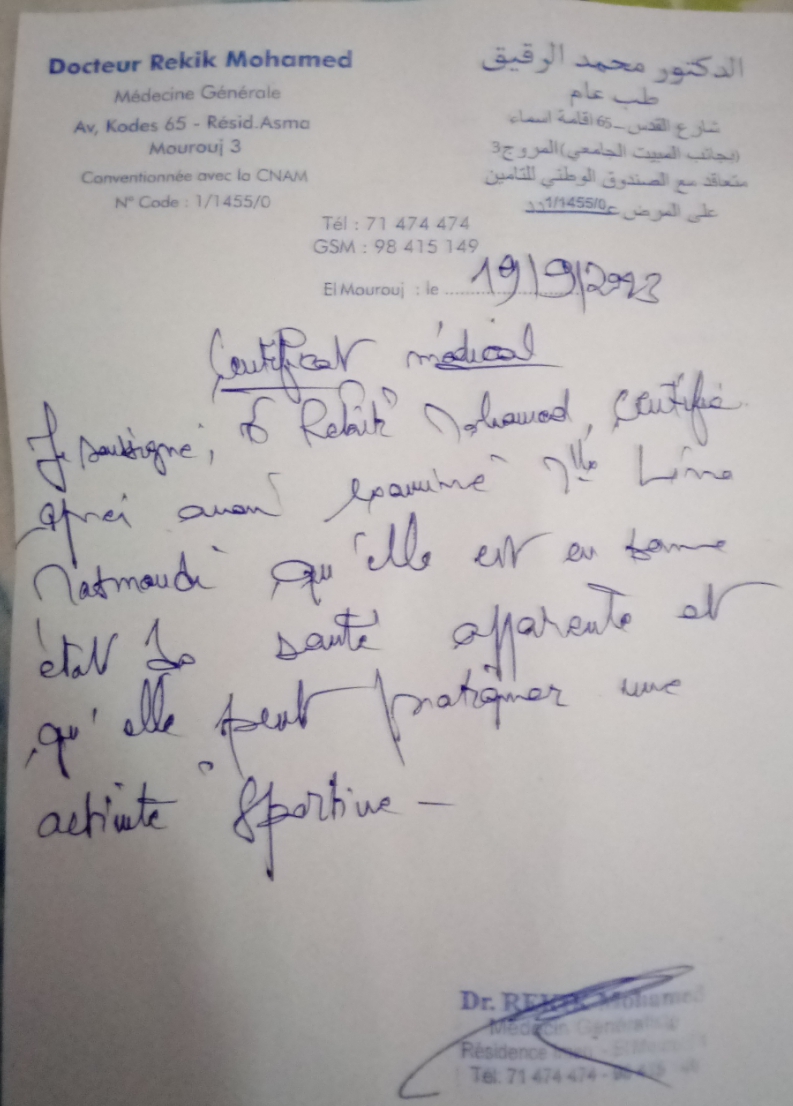 Docteur Rekik Mohamed
Médecine Générale
Av, Kodes 65 - Résid.Asma
Mourouj 3
Conventionnée avec la CNAM
N° Code : 1/1455/0
الدكتور محمد الرقيق
طب عام
شارع القدس _65 اقامة اسماء
(بجانب المبيت الجامعي) المروج3
متعاقد مع الصندوق الوطني للتامين
على المرض عدد1/1455/0
Tél : 71 474 474
GSM : 98 415 149
El Mourouj : le 19/9/2023
Certificat médical
Je soussigné, Dr Rekik Mohamed, certifie
après avoir examiné Mlle Lina
Masmoudi qu'elle est en bonne
état de santé apparente et
qu'elle peut pratiquer une
activité sportive -
Dr. REKIK Mohamed
Médecin Généraliste
Résidence
Tél: 71 474 474 -